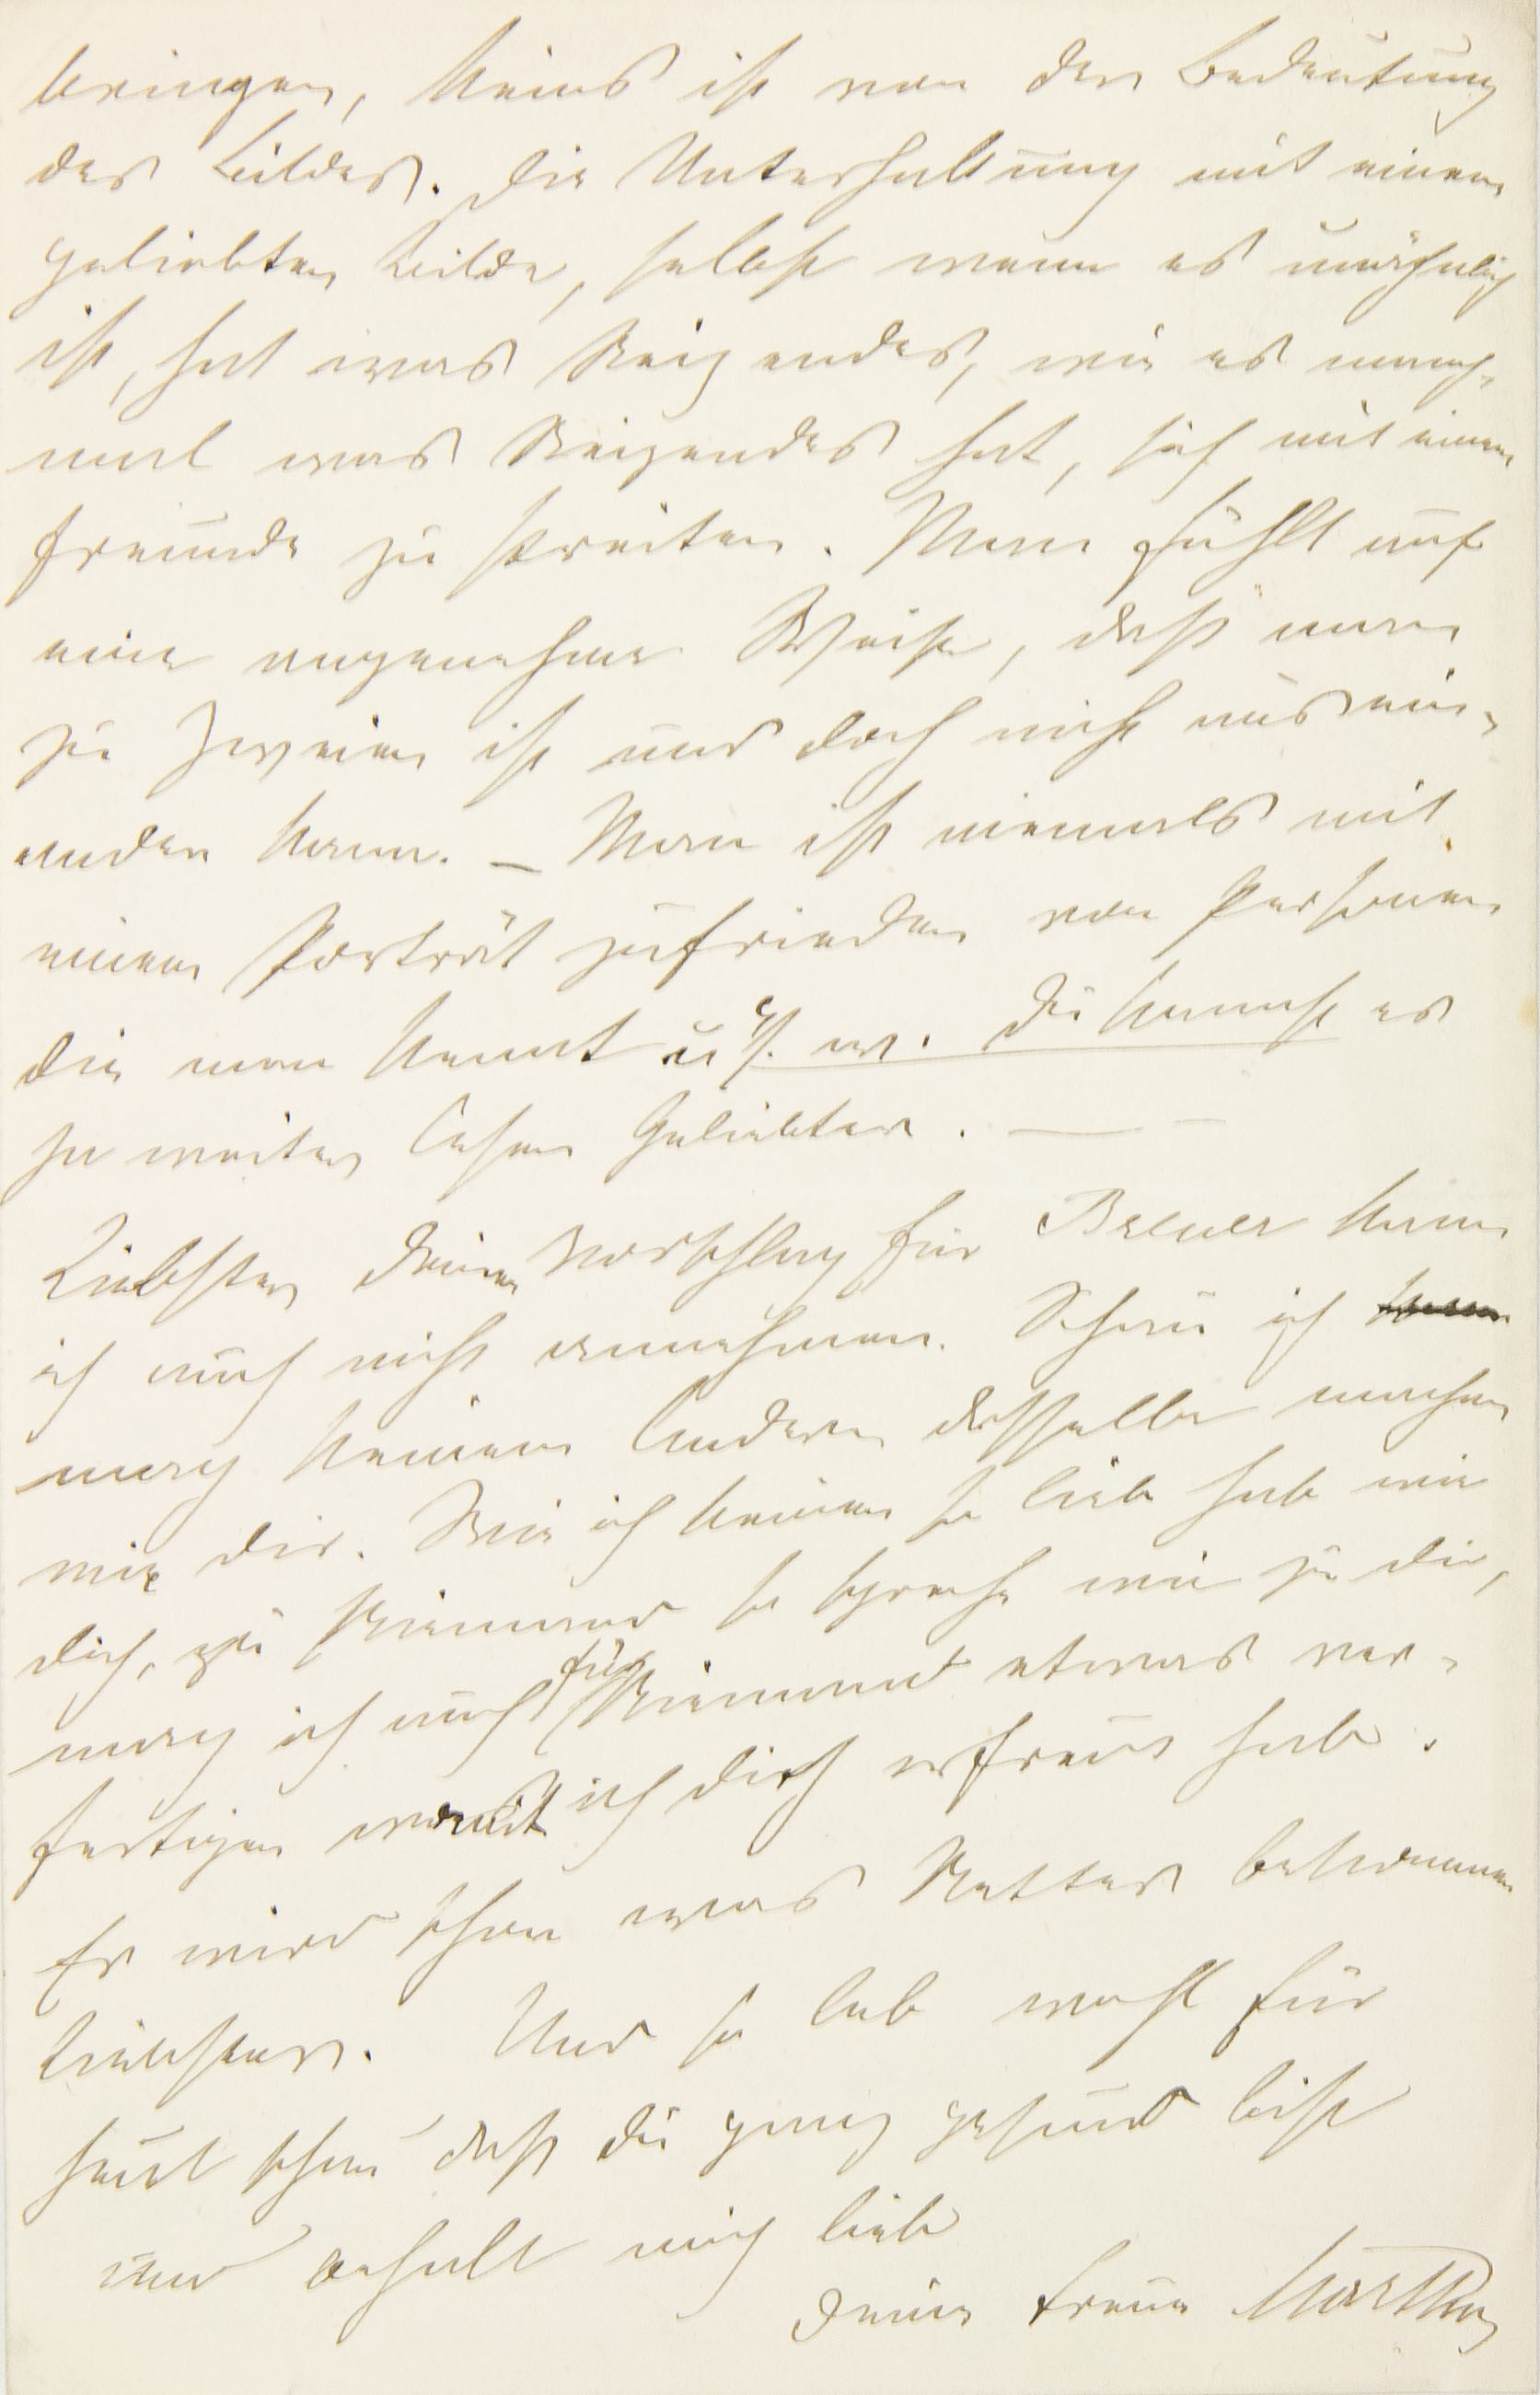 bringen, keins ist von der Bedeutung
des Bildes. Die Unterhaltung mit einem
geliebten Bilde, selbst wenn es unähnlich
ist, hat was Reizendes, wie es manch-
mal was Reizendes hat, sich mit einem
Freunde zu streiten. Man fühlt auf
eine angenehme Weise, daß man
zu Zweien ist und doch nicht ausein-
ander kann. – Man ist niemals mit
einem Porträt zufrieden von Personen
die man kennt u s. w. Du kannst es
ja weiter lesen Geliebter. — –
Liebster deinen Vorschlag für Breuer kann
ich auch nicht annehmen. Schau ich
mag keinem Andern dasselbe machen
wie dir. Wie ich keinen so lieb hab wie
dich, zu Niemand so spreche wie zu dir,
mag ich auch für Niemand etwas ver-
fertigen womit ich dich erfreut habe.
Er wird schon was Nettes bekommen
Liebster. Und so leb wohl für
heut schau daß du ganz gesund bist
und behalt mich lieb
deine treue Martha